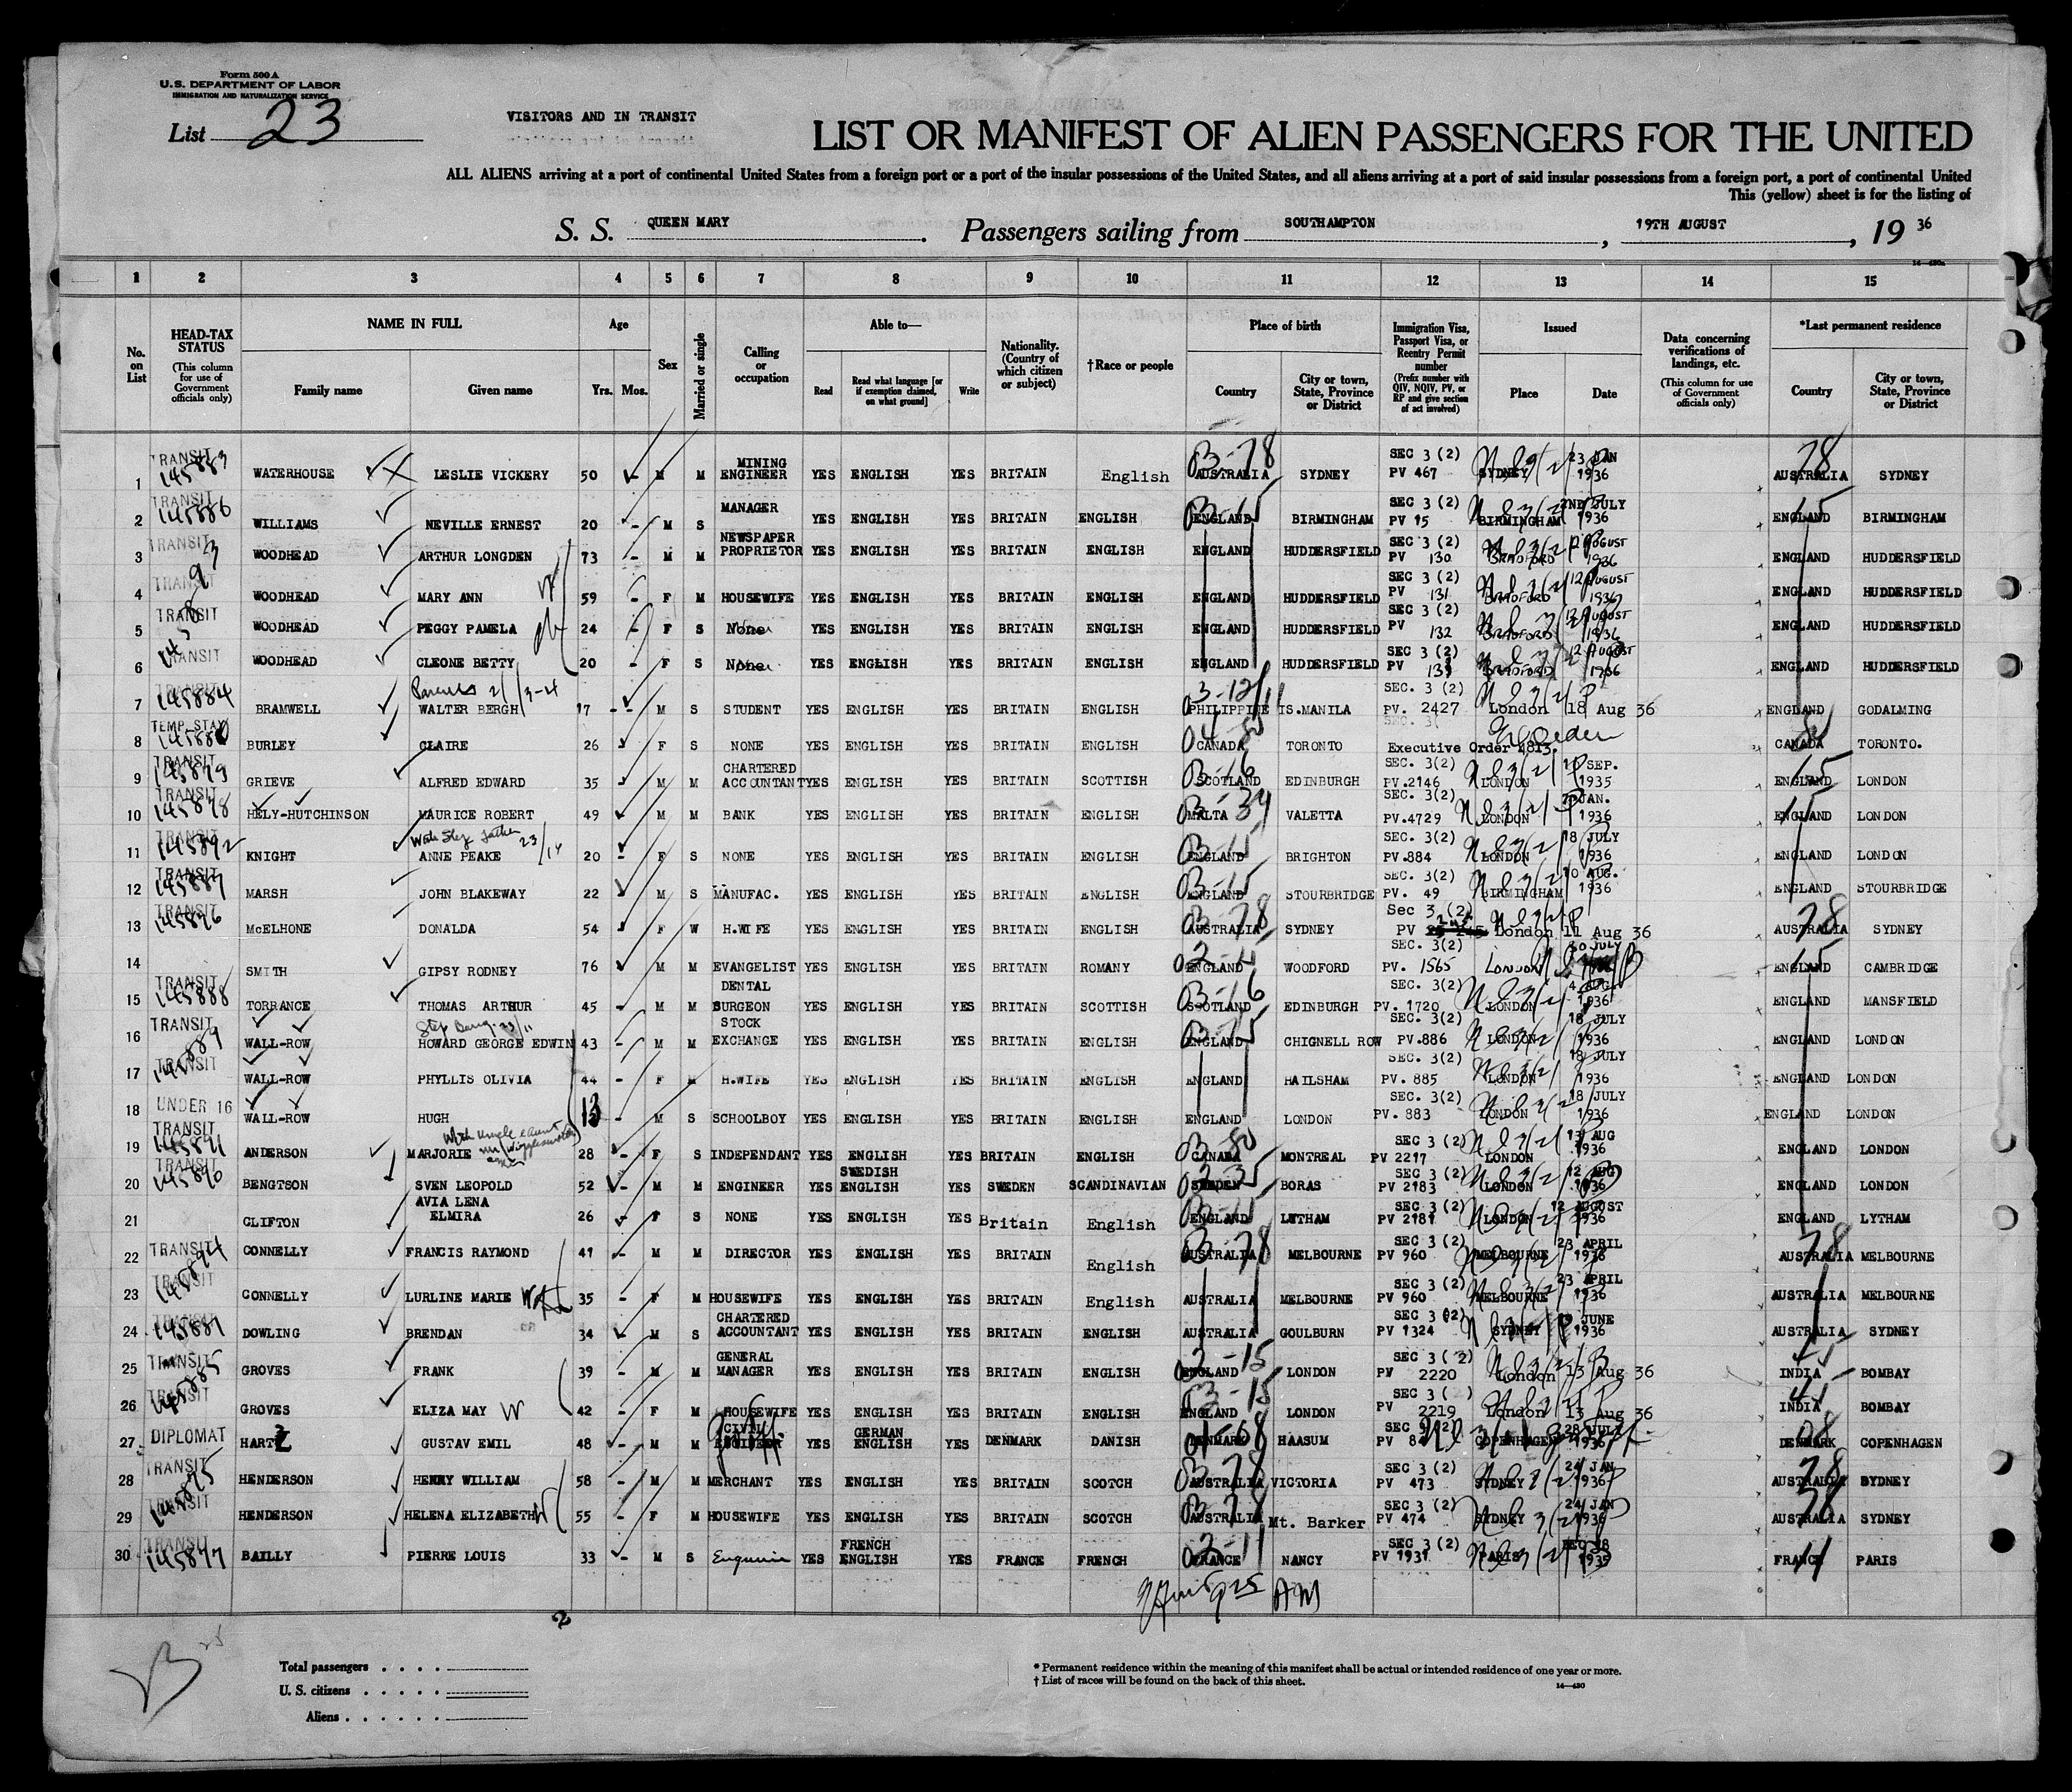 Form 500 A
U.S. DEPARTMENT OF LABOR
IMMIGRATION AND NATURALIZATION SERVICE
List 23
VISITORS AND IN TRANSIT
LIST OR MANIFEST OF ALIEN PASSENGERS FOR THE UNITED
ALL ALIENS arriving at a port of continental United States from a foreign port or a port of the insular possessions of the United States, and all aliens arriving at a port of said insular possessions from a foreign port, a port of continental United
This (yellow) sheet is for the listing of
S. S. QUEEN MARY . Passengers sailing from SOUTHAMPTON , 19TH AUGUST , 19 36
1 2 3 4 5 6 7 8 9 10 11 12 13 14 15
No. on List
HEAD-TAX STATUS (This column for use of Government officials only)
NAME IN FULL Family name Given name
Age Yrs. Mos.
Sex
Married or single
Calling or occupation
Able to— Read Read what language [or if exemption claimed, on what ground] Write
Nationality. (Country of which citizen or subject)
†Race or people
Place of birth Country City or town, State, Province or District
Immigration Visa, Passport Visa, or Reentry Permit number (Prefix number with QIV, NQIV, PV, or RP and give section of act involved)
Issued Place Date
Data concerning verifications of landings, etc. (This column for use of Government officials only)
*Last permanent residence Country City or town, State, Province or District
1 TRANSIT 145883 WATERHOUSE LESLIE VICKERY 50 M M MINING ENGINEER YES ENGLISH YES BRITAIN English AUSTRALIA SYDNEY SEC 3 (2) PV 467 SYDNEY 23 JAN 1936 AUSTRALIA SYDNEY
2 TRANSIT 145886 WILLIAMS NEVILLE ERNEST 20 - M S MANAGER YES ENGLISH YES BRITAIN ENGLISH ENGLAND BIRMINGHAM SEC 3 (2) PV 15 BIRMINGHAM 2ND JULY 1936 ENGLAND BIRMINGHAM
3 TRANSIT WOODHEAD ARTHUR LONGDEN 73 - M M NEWSPAPER PROPRIETOR YES ENGLISH YES BRITAIN ENGLISH ENGLAND HUDDERSFIELD SEC 3 (2) PV 130 BRADFORD AUGUST 1936 ENGLAND HUDDERSFIELD
4 TRANSIT WOODHEAD MARY ANN W 59 - F M HOUSEWIFE YES ENGLISH YES BRITAIN ENGLISH ENGLAND HUDDERSFIELD SEC 3 (2) PV 131 BRADFORD 12 AUGUST 1936 ENGLAND HUDDERSFIELD
5 TRANSIT WOODHEAD PEGGY PAMELA 24 - F S None YES ENGLISH YES BRITAIN ENGLISH ENGLAND HUDDERSFIELD SEC 3 (2) PV 132 BRADFORD 12 AUGUST 1936 ENGLAND HUDDERSFIELD
6 TRANSIT WOODHEAD CLEONE BETTY 20 - F S None YES ENGLISH YES BRITAIN ENGLISH ENGLAND HUDDERSFIELD SEC 3 (2) PV 133 BRADFORD 12 AUGUST 1936 ENGLAND HUDDERSFIELD
7 TRANSIT 145884 BRAMWELL WALTER BERGH 17 - M S STUDENT YES ENGLISH YES BRITAIN ENGLISH PHILIPPINE IS. MANILA SEC. 3 (2) PV. 2427 London 18 Aug 36 ENGLAND GODALMING
8 TEMP. STAY BURLEY CLAIRE 26 F S NONE YES ENGLISH YES BRITAIN ENGLISH CANADA TORONTO Executive Order 4813. CANADA TORONTO.
9 TRANSIT 145879 GRIEVE ALFRED EDWARD 35 M M CHARTERED ACCOUNTANT YES ENGLISH YES BRITAIN SCOTTISH SCOTLAND EDINBURGH SEC. 3(2) PV.2146 LONDON SEP. 1935 ENGLAND LONDON
10 TRANSIT 145878 HELY-HUTCHINSON MAURICE ROBERT 49 M M BANK YES ENGLISH YES BRITAIN ENGLISH MALTA VALETTA SEC. 3(2) PV.4729 LONDON JAN. 1936 ENGLAND LONDON
11 TRANSIT 145892 KNIGHT With Step father 23/14 ANNE PEAKE 20 - F S NONE YES ENGLISH YES BRITAIN ENGLISH ENGLAND BRIGHTON SEC. 3(2) PV.884 LONDON 18 JULY 1936 ENGLAND LONDON
12 TRANSIT 145887 MARSH JOHN BLAKEWAY 22 M S MANUFAC. YES ENGLISH YES BRITAIN ENGLISH ENGLAND STOURBRIDGE SEC. 3(2) PV. 49 BIRMINGHAM 10 AUG. 1936 ENGLAND STOURBRIDGE
13 TRANSIT 145876 McELHONE DONALDA 54 F W H.WIFE YES ENGLISH YES BRITAIN ENGLISH AUSTRALIA SYDNEY Sec 3 (2) PV London 11 Aug 36 AUSTRALIA SYDNEY
14 SMITH GIPSY RODNEY 76 M M EVANGELIST YES ENGLISH YES BRITAIN ROMANY ENGLAND WOODFORD SEC. 3(2) PV. 1565 LONDON 20 JULY ENGLAND CAMBRIDGE
15 TRANSIT 145888 TORRANCE THOMAS ARTHUR 45 - M M DENTAL SURGEON YES ENGLISH YES BRITAIN SCOTTISH SCOTLAND EDINBURGH SEC. 3(2) PV. 1720 LONDON 4 AUG. 1936 ENGLAND MANSFIELD
16 TRANSIT 145889 WALL-ROW HOWARD GEORGE EDWIN 43 - M M STOCK EXCHANGE YES ENGLISH YES BRITAIN ENGLISH ENGLAND CHIGNELL ROW SEC. 3(2) PV.886 LONDON 18 JULY 1936 ENGLAND LONDON
17 TRANSIT WALL-ROW PHYLLIS OLIVIA 44 - F M H.WIFE YES ENGLISH YES BRITAIN ENGLISH ENGLAND HAILSHAM SEC. 3(2) PV. 885 LONDON 18 JULY 1936 ENGLAND LONDON
18 UNDER 16 WALL-ROW HUGH 13 - M S SCHOOLBOY YES ENGLISH YES BRITAIN ENGLISH ENGLAND LONDON SEC. 3(2) PV. 883 LONDON 18 JULY 1936 ENGLAND LONDON
19 TRANSIT 145891 ANDERSON MARJORIE With uncle & aunt 28 - F S INDEPENDANT YES ENGLISH YES BRITAIN ENGLISH CANADA MONTREAL SEC 3 (2) PV 2217 LONDON 13 AUG 1936 ENGLAND LONDON
20 TRANSIT 145890 BENGTSON SVEN LEOPOLD 52 - M M ENGINEER YES SWEDISH ENGLISH YES SWEDEN SCANDINAVIAN SWEDEN BORAS SEC 3 (2) PV 2183 LONDON 12 AUG 1936 ENGLAND LONDON
21 CLIFTON AVIA LENA ELMIRA 26 - F S NONE YES ENGLISH YES Britain English ENGLAND LYTHAM SEC 3 (2) PV 2181 LONDON 12 AUGUST 1936 ENGLAND LYTHAM
22 TRANSIT 145894 CONNELLY FRANCIS RAYMOND 41 - M M DIRECTOR YES ENGLISH YES BRITAIN English AUSTRALIA MELBOURNE SEC 3 (2) PV 960 MELBOURNE 23 APRIL 1936 AUSTRALIA MELBOURNE
23 TRANSIT CONNELLY LURLINE MARIE 35 - F M HOUSEWIFE YES ENGLISH YES BRITAIN English AUSTRALIA MELBOURNE SEC 3 (2) PV 960 MELBOURNE 23 APRIL 1936 AUSTRALIA MELBOURNE
24 TRANSIT DOWLING BRENDAN 34 - M S CHARTERED ACCOUNTANT YES ENGLISH YES BRITAIN ENGLISH AUSTRALIA GOULBURN SEC 3 (2) PV 1324 SYDNEY JUNE 1936 AUSTRALIA SYDNEY
25 TRANSIT 145885 GROVES FRANK 39 - M M GENERAL MANAGER YES ENGLISH YES BRITAIN ENGLISH ENGLAND LONDON SEC 3 (2) PV 2220 London 13 Aug 36 INDIA BOMBAY
26 TRANSIT GROVES ELIZA MAY W 42 - F M HOUSEWIFE YES ENGLISH YES BRITAIN ENGLISH ENGLAND LONDON SEC 3 ( ) PV 2219 London 13 Aug 36 INDIA BOMBAY
27 DIPLOMAT HARTZ GUSTAV EMIL 48 - M M CIVIL ENGINEER YES GERMAN ENGLISH YES DENMARK DANISH DENMARK HAASUM PV COPENHAGEN 28 JULY 1936 DENMARK COPENHAGEN
28 TRANSIT 145875 HENDERSON HENRY WILLIAM 58 - M M MERCHANT YES ENGLISH YES BRITAIN SCOTCH AUSTRALIA VICTORIA SEC 3 (2) PV 473 SYDNEY 24 JAN 1936 AUSTRALIA SYDNEY
29 TRANSIT HENDERSON HELENA ELIZABETH W 55 - F M HOUSEWIFE YES ENGLISH YES BRITAIN SCOTCH AUSTRALIA Mt. Barker SEC 3 (2) PV 474 SYDNEY 24 JAN 1936 AUSTRALIA SYDNEY
30 TRANSIT 145877 BAILLY PIERRE LOUIS 33 - M S YES FRENCH ENGLISH YES FRANCE FRENCH FRANCE NANCY SEC 3 (2) PV 1931 PARIS 1935 FRANCE PARIS
Total passengers . . . .
U. S. citizens . . . . .
Aliens . . . . . .
* Permanent residence within the meaning of this manifest shall be actual or intended residence of one year or more.
† List of races will be found on the back of this sheet.
14—430